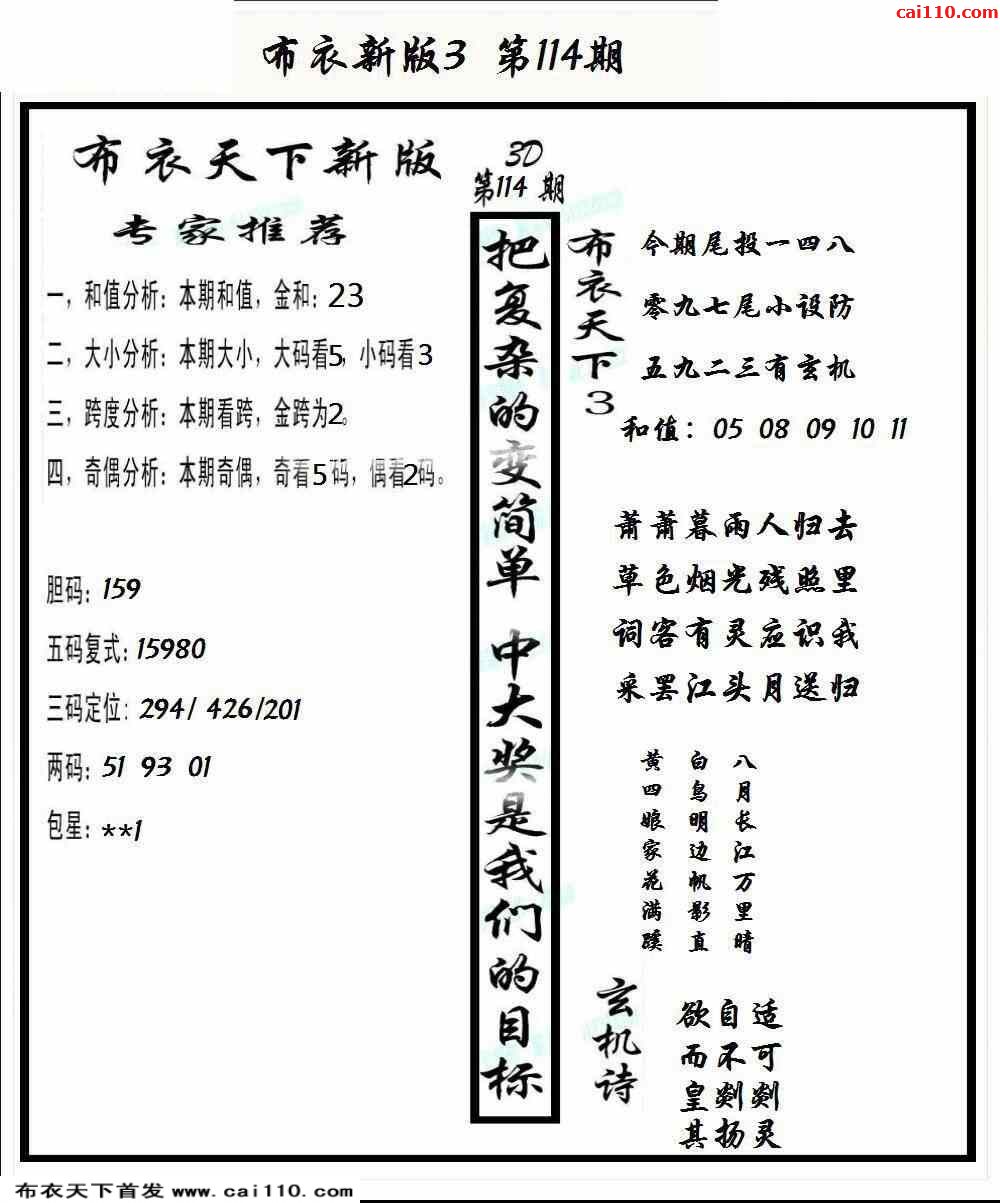 cai110.com
布衣新版3 第114期
布衣天下新版
专家推荐
一，和值分析：本期和值，金和：23
二，大小分析：本期大小，大码看5，小码看3
三，跨度分析：本期看跨，金跨为2。
四，奇偶分析：本期奇偶，奇看5码，偶看2码。
胆码：159
五码复式：15980
三码定位：294/ 426/201
两码：51 93 01
包星：**1
3D
第114 期
把复杂的变简单 中大奖是我们的目标
布衣天下3
今期尾投一四八
零九七尾小设防
五九二三有玄机
和值：05 08 09 10 11
萧萧暮雨人归去
草色烟光残照里
词客有灵应识我
采罢江头月送归
八月长江万里暗
白鸟明边帆影直
黄四娘家花满蹊
玄机诗
欲自适
而不可
皇剡剡
其扬灵
布衣天下首发 www.cai110.com